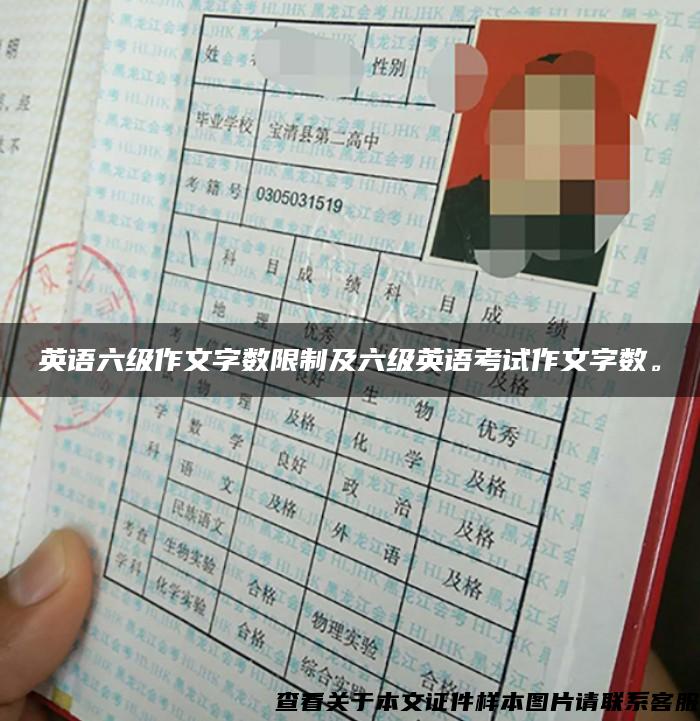 姓 性别
毕业学校 宝清县第二高中
考籍号 0305031519
科目 成绩 科目 成绩
地理 优秀
英语六级作文字数限制及六级英语考试作文字数。
良好 及格
物理 及格 生物 优秀
数学 良好 化学 及格
语文 及格 政治 及格
民族语文 外语 及格
考查学科 生物实验 合格 物理实验
化学实验 合格 综合实 合格
黑龙江会考 HLJHK
查看关于本文证件样本图片请联系客服